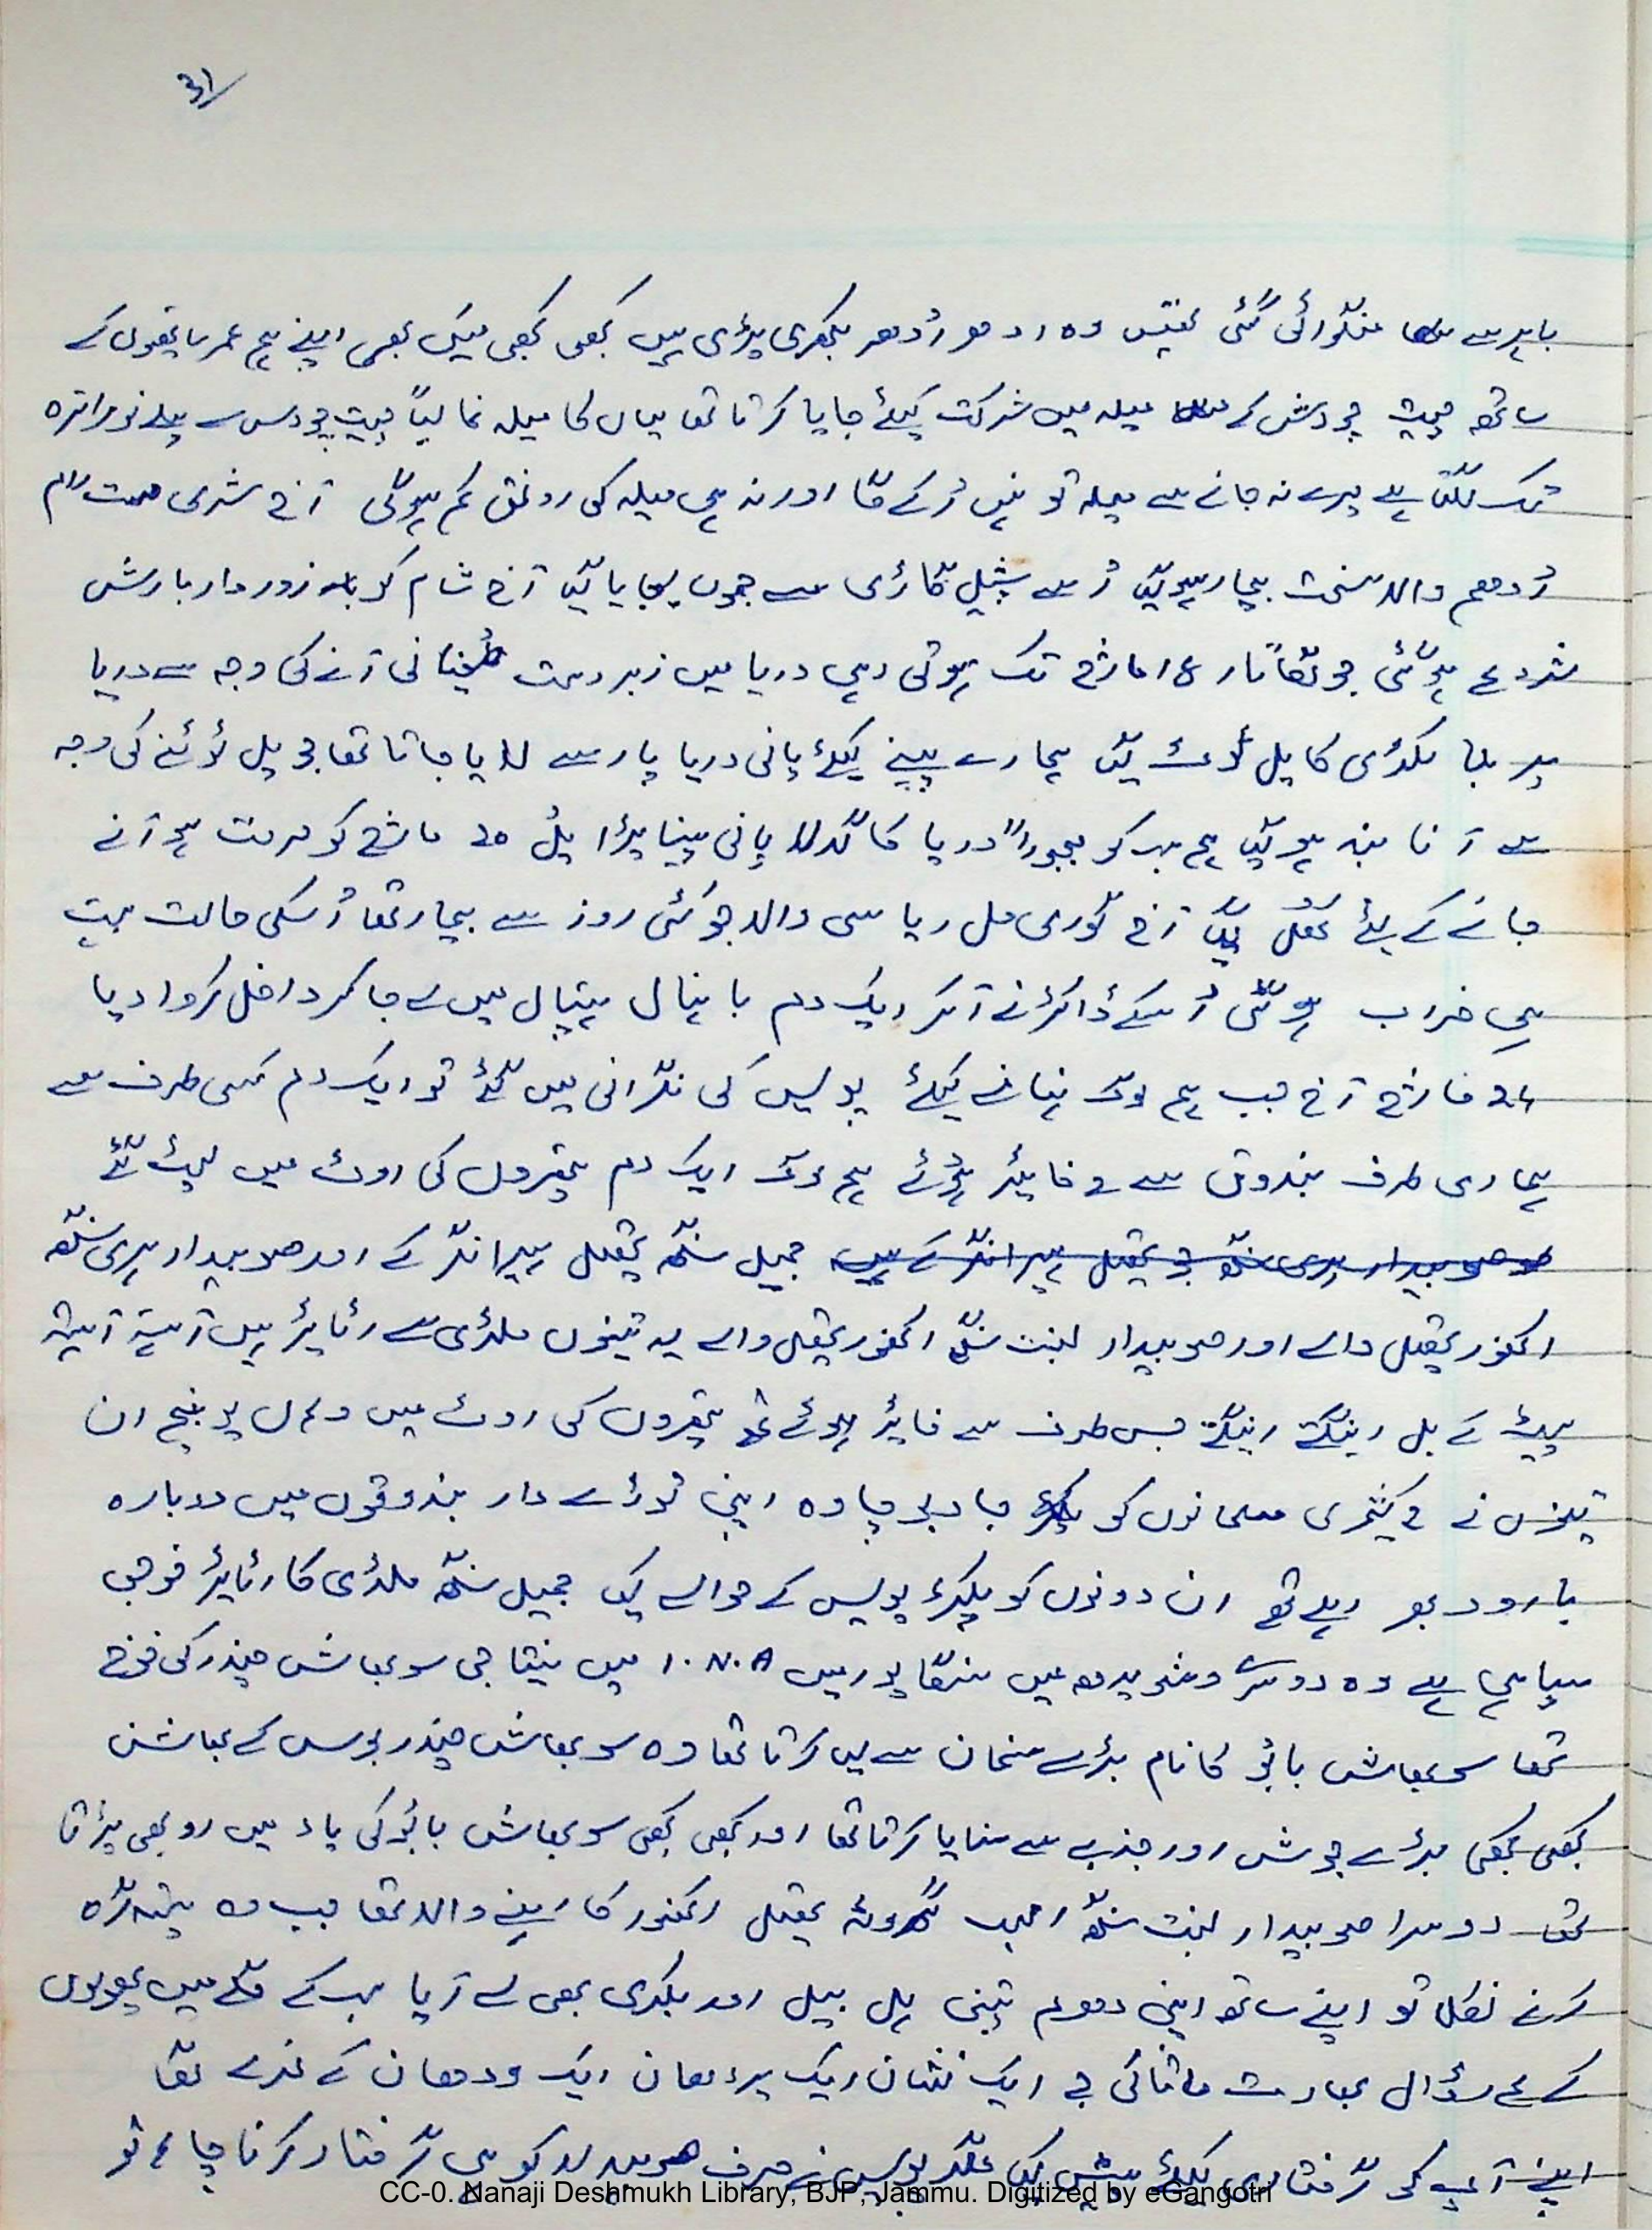 31
باہر سے منگوائی گئی تھیں وہ ادھر اُدھر بکھری پڑی ہیں کبھی کبھی میں بھی اپنے ہم عمر ساتھیوں کے
ساتھ چیت چودش کے میلہ میں شرکت کیلئے جایا کرتا تھا یہاں کا میلہ غالباً چیت چودس سے پہلے نوراترہ
تک لگتا ہے میرے نہ جانے سے میلہ تو نہیں رُکے گا اور نہ ہی میلہ کی رونق کم ہوگی آج شری رام
اُودھم والا سخت بیمار ہوگیا اُسے سپیشل گاڑی سے جموں لیجایا گیا آج شام کو زوردار بارش
شروع ہوگئی جو لگاتار ۱۸ مارچ تک ہوتی رہی دریا میں زبردست طُغیانی آنے کی وجہ سے دریا
پر بنا لکڑی کا پل ٹوٹ گیا ہمارے پینے کیلئے پانی دریا پار سے لایا جاتا تھا جو پل ٹوٹنے کی وجہ
سے آنا بند ہوگیا ہم سب کو مجبوراً دریا کا گدلا پانی پینا پڑا پُل 20 مارچ کو مرمت ہو آنے
جانے کے لئے کھُل گیا آج گوری مل ریاسی والا جو کئی روز سے بیمار تھا اُسکی حالت بہت
ہی خراب ہوگئی اُسکے ڈاکٹر نے آکر ایک دم بانہال ہسپتال میں لے جا کر داخل کروا دیا
24 مارچ آج جب ہم لوگ نہانے کیلئے پولیس کی نگرانی میں گئے تو ایک دم کسی طرف سے
ہماری طرف بندوق سے 2 فائیر ہوئے ہم لوگ ایک دم پتھروں کی اوٹ میں لیٹ گئے
صوبیدار ہری سنگھ جو تحصیل ہیرانگر کے ہیں جمیل سنگھ تحصیل ہیرانگر کے اور صوبیدار ہری سنگھ
اکھنور تحصیل والے اور صوبیدار بسنت سنگھ اکھنور تحصیل والے یہ تینوں ملٹری سے رٹایئر ہیں آہستہ آہستہ
پیٹ کے بل رینگتے رینگتے جس طرف سے فائیر ہوئے تھے پتھروں کی اوٹ میں وہاں پہنچے ان
تینوں نے 2 کشمیری مسلمانوں کو جا دبوچا وہ اپنی توڑے دار بندوقوں میں دوبارہ
بارود بھر رہے تھے ان دونوں کو پکڑ پولیس کے حوالے کیا جمیل سنگھ ملٹری کا رٹایئر فوجی
سپاہی ہے وہ دوسرے وشو یدھ میں سنگاپور میں I.N.A میں نیتا جی سوبھاش چندر کی فوج
تھا سوبھاش بابُو کا نام بڑے سنمان سے لیا کرتا تھا وہ سوبھاش چندر بوس کے بھاشن
کبھی کبھی بڑے جوش اور جذبے سے سنایا کرتا تھا اور کبھی کبھی سوبھاش بابُو کی یاد میں رو بھی پڑتا
تھا دوسرا صوبیدار بسنت سنگھ تحصیل اکھنور کا رہنے والا تھا جب وہ ستیہ گرہ
کرنے نکلا تو اپنے ساتھ اپنی دھرم پتنی ہل بیل اور بکری بھی لے آیا سب کے گلے میں پھولوں
کے ڈال بھارت ماتا کی جے ایک نشان ایک پردھان ایک ودھان کے نعرے لگا
اپنے آپ کو گرفتاری کیلئے پیش کیا مگر پولیس نے صرف صوبیدار کو ہی گرفتار کرنا چاہا تو
CC-0. Nanaji Deshmukh Library, BJP, Jammu. Digitized by eGangotri